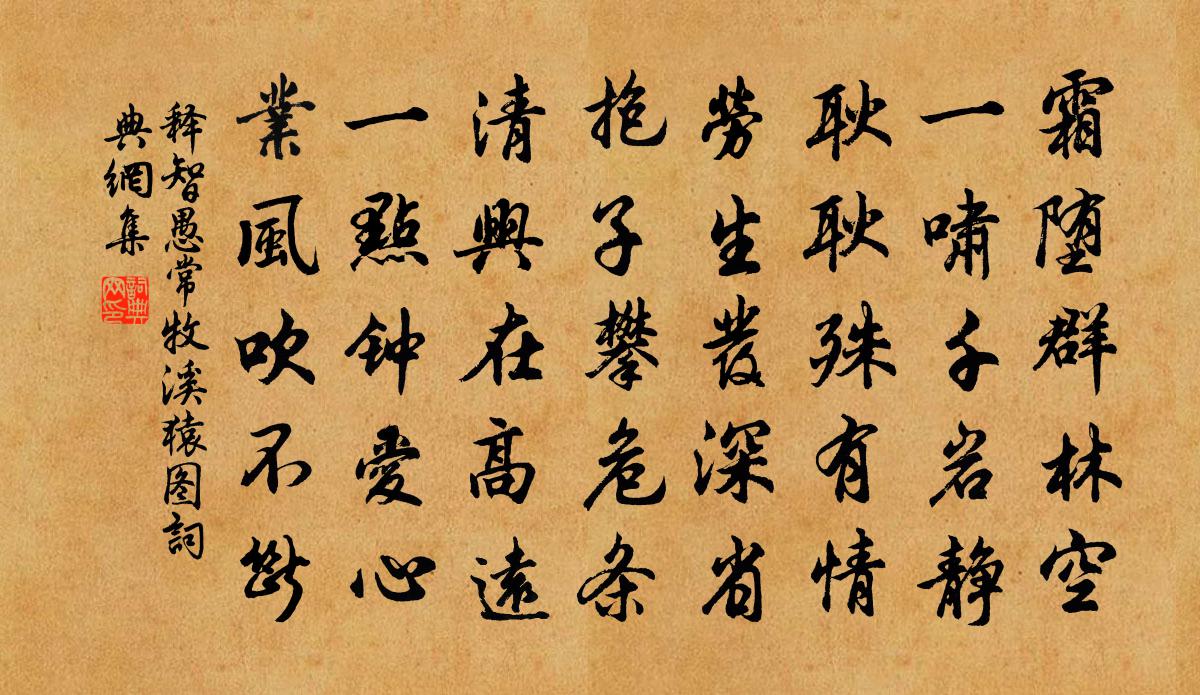 霜堕群林空
一啸千岩静
耿耿殊有情
劳生發深省
抱子攀危条
清興在高遠
一點钟愛心
業風吹不斷
释智愚常牧溪猿图詞
典網集
詞典
网印